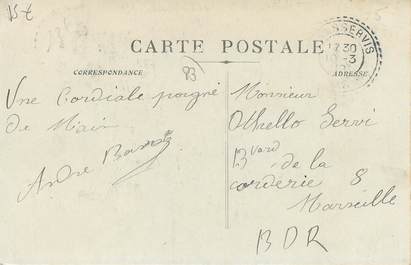 15 €
CARTE POSTALE
CORRESPONDANCE
83
ADRESSE
17 30
Une Cordiale poigné
de Main
André
Monsieur
Othello Servi
Bvard de la
corderie 8
Marseille
BDR